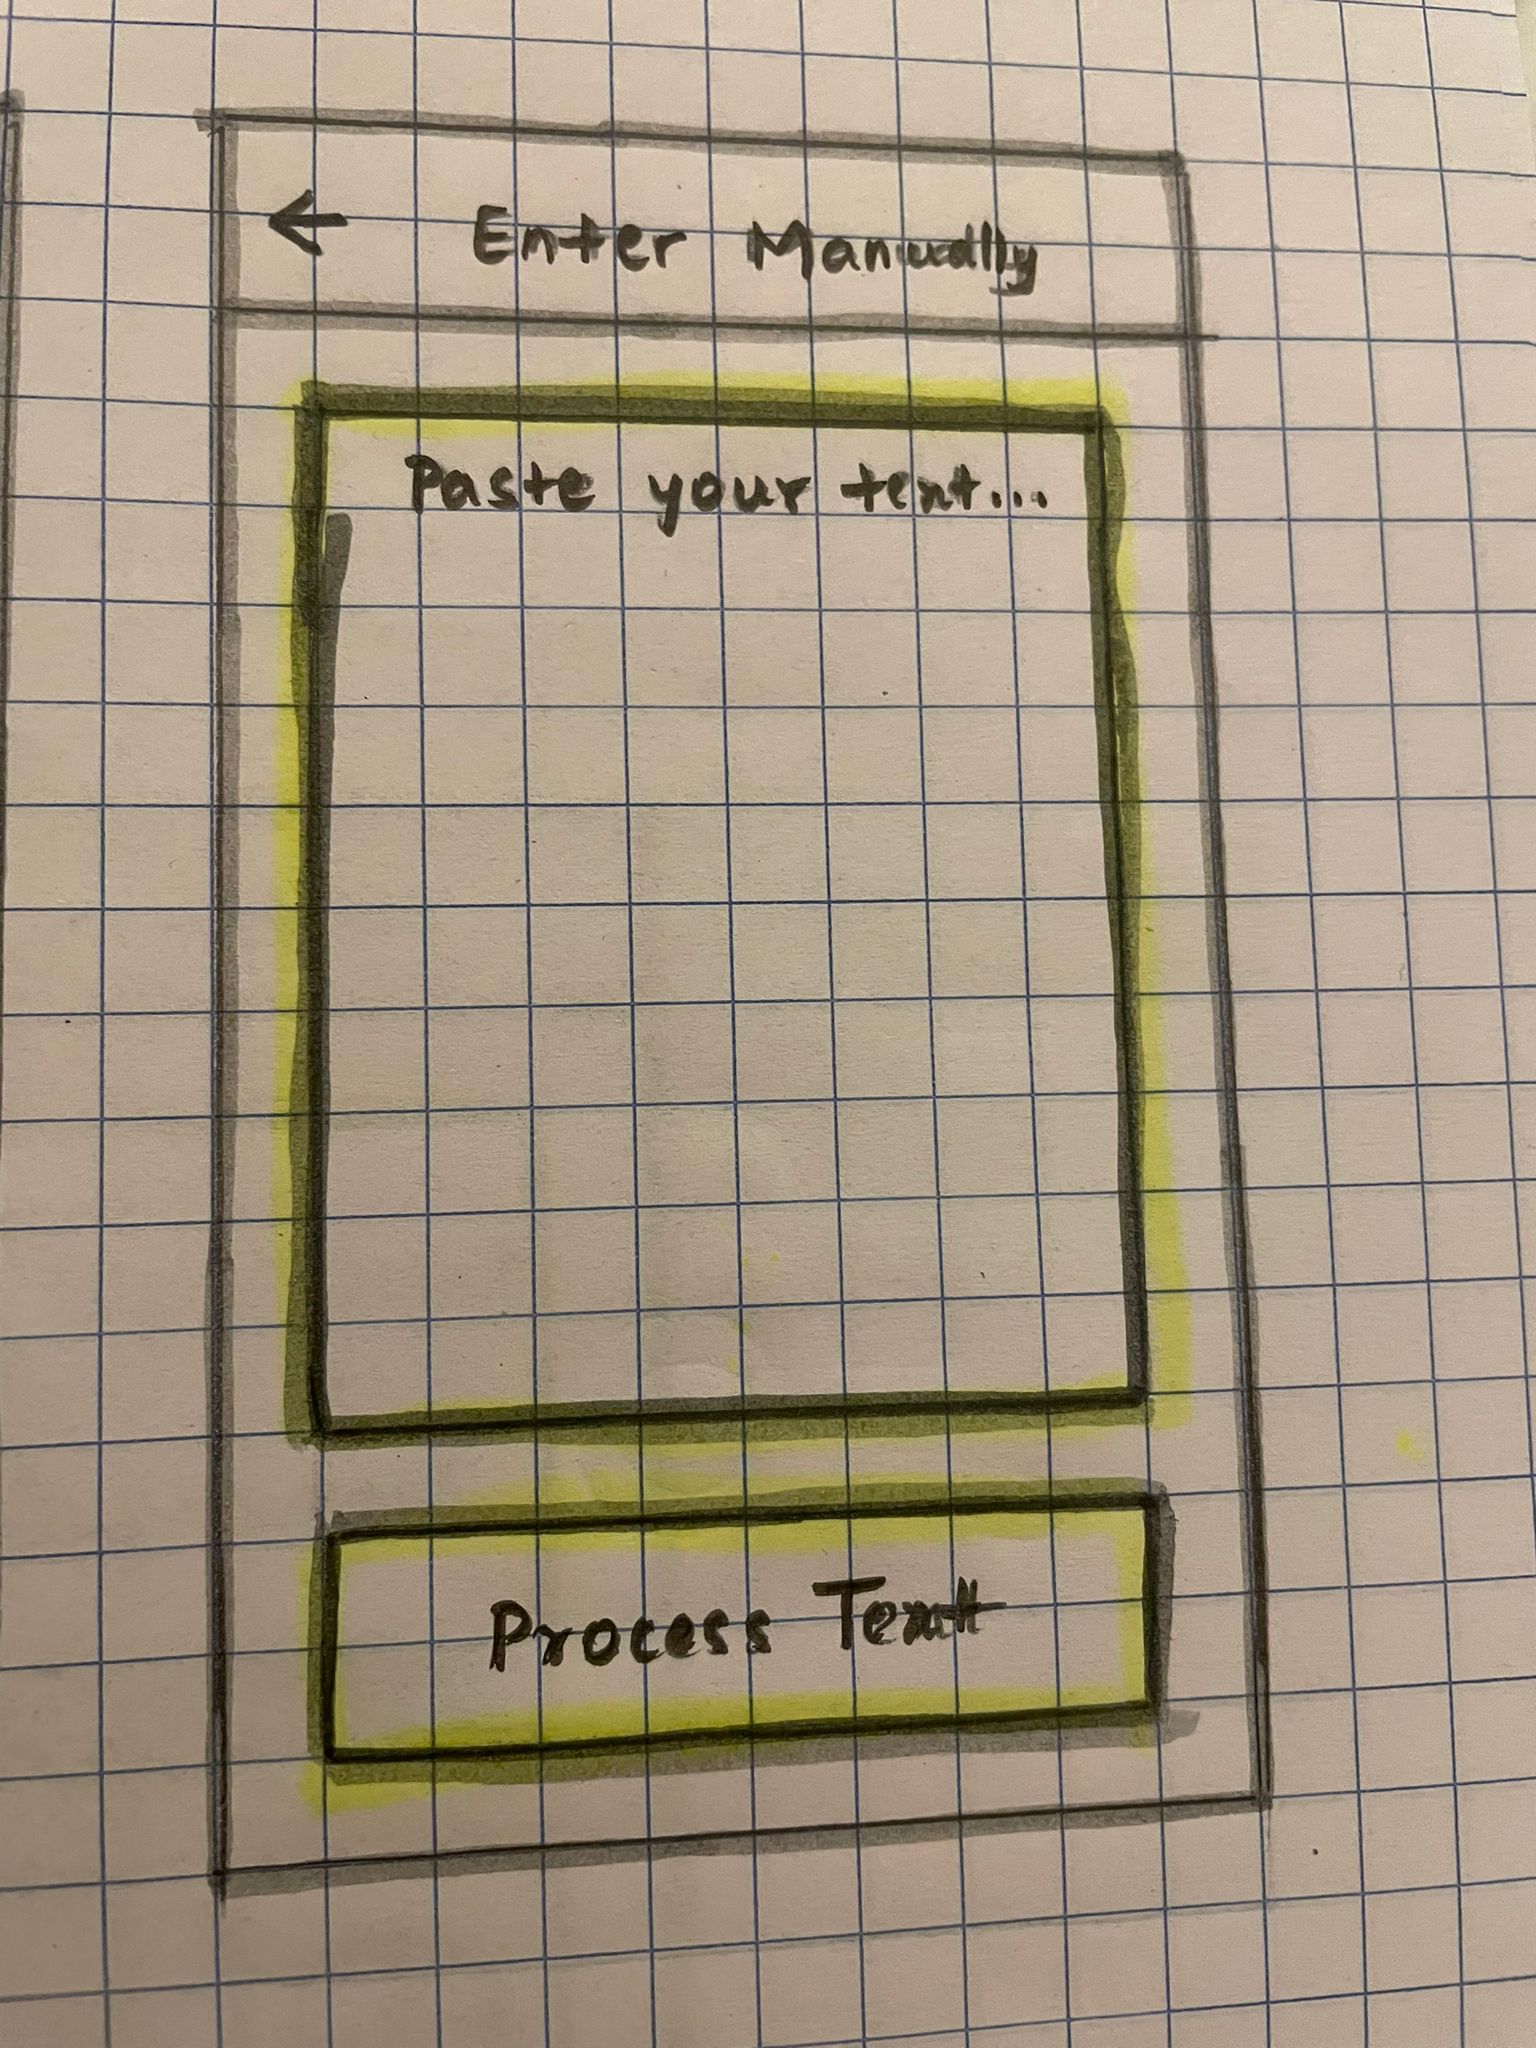 ← Enter Manually
Paste your text...
Process Text